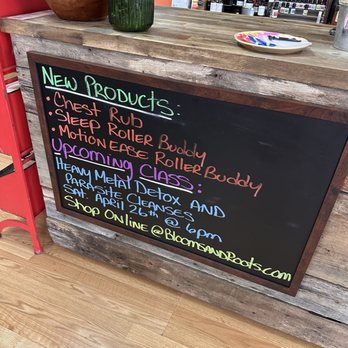 New Products:
• Chest Rub
• Sleep Roller Buddy
• Motion Ease Roller Buddy
Upcoming Class:
Heavy Metal Detox and
Parasite Cleanses
Sat. April 26th @ 6pm
Shop Online @ BloomsandRoots.com